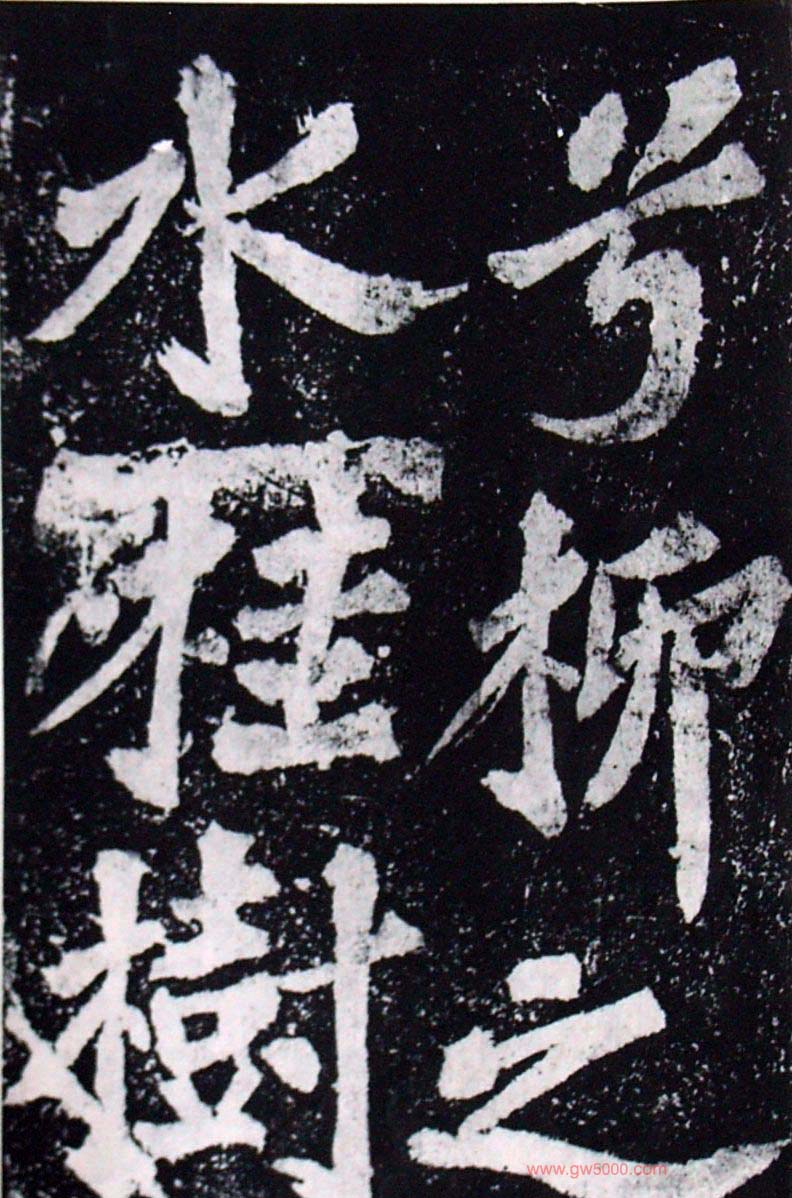 兮柳之
水桂樹
www.gw5000.com